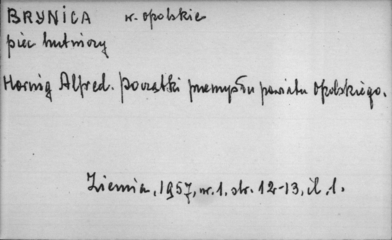 BRYNICA w. opolskie
piec hutniczy
Hornig Alfred. Początki przemysłu powiatu Opolskiego.
Ziemia, 1957, nr. 1. str. 12-13, il. 1.